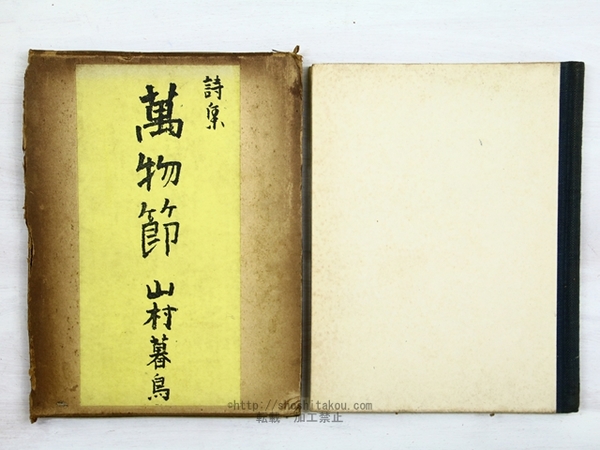 詩集
萬物節
山村暮鳥
©http://shoshitakou.com/
転載・加工禁止